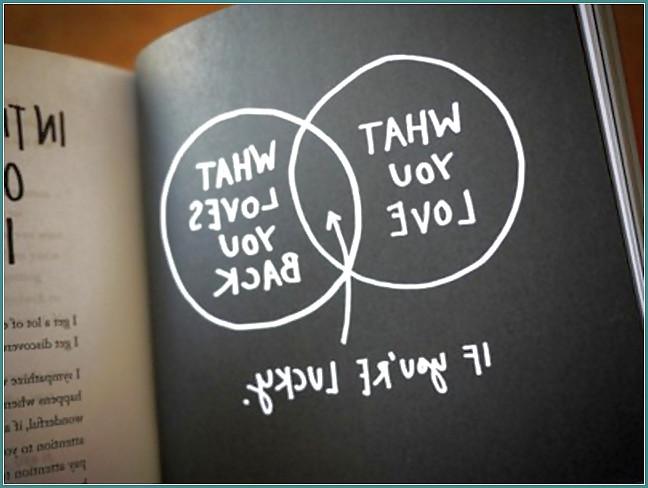 WHAT
YOU
LOVE
WHAT
LOVES
YOU
BACK
IF YOU'RE LUCKY.
IN T
O
I get a lot of
I get discovere
I sympathize
happens when
wonderful, if a
attention to yo
pay attention